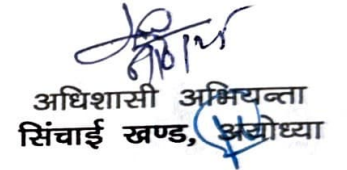 अधिशासी अभियन्ता
सिंचाई खण्ड, अयोध्या